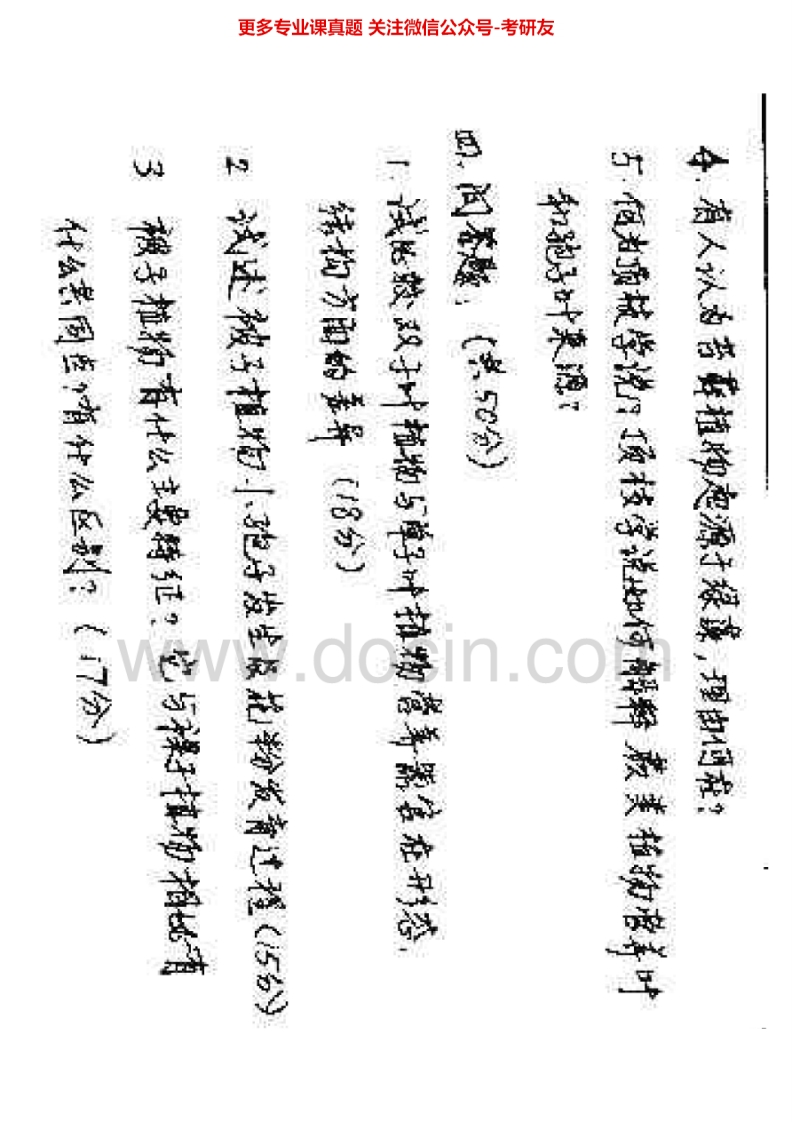 更多专业课真题 关注微信公众号-考研友
4. 有人认为苔藓植物起源于绿藻，理由何在？
5. 何为顶枝学说？顶枝学说如何解释蕨类植物营养叶
和孢子叶来源？
四、问答题：（共50分）
1. 试比较双子叶植物与单子叶植物营养器官在形态、
结构方面的差异（18分）
2 试述被子植物小孢子发生及花粉发育过程（15分）
3 被子植物有什么主要特征？它与裸子植物相比有
什么共同点？有什么区别？（17分）
www.docin.com